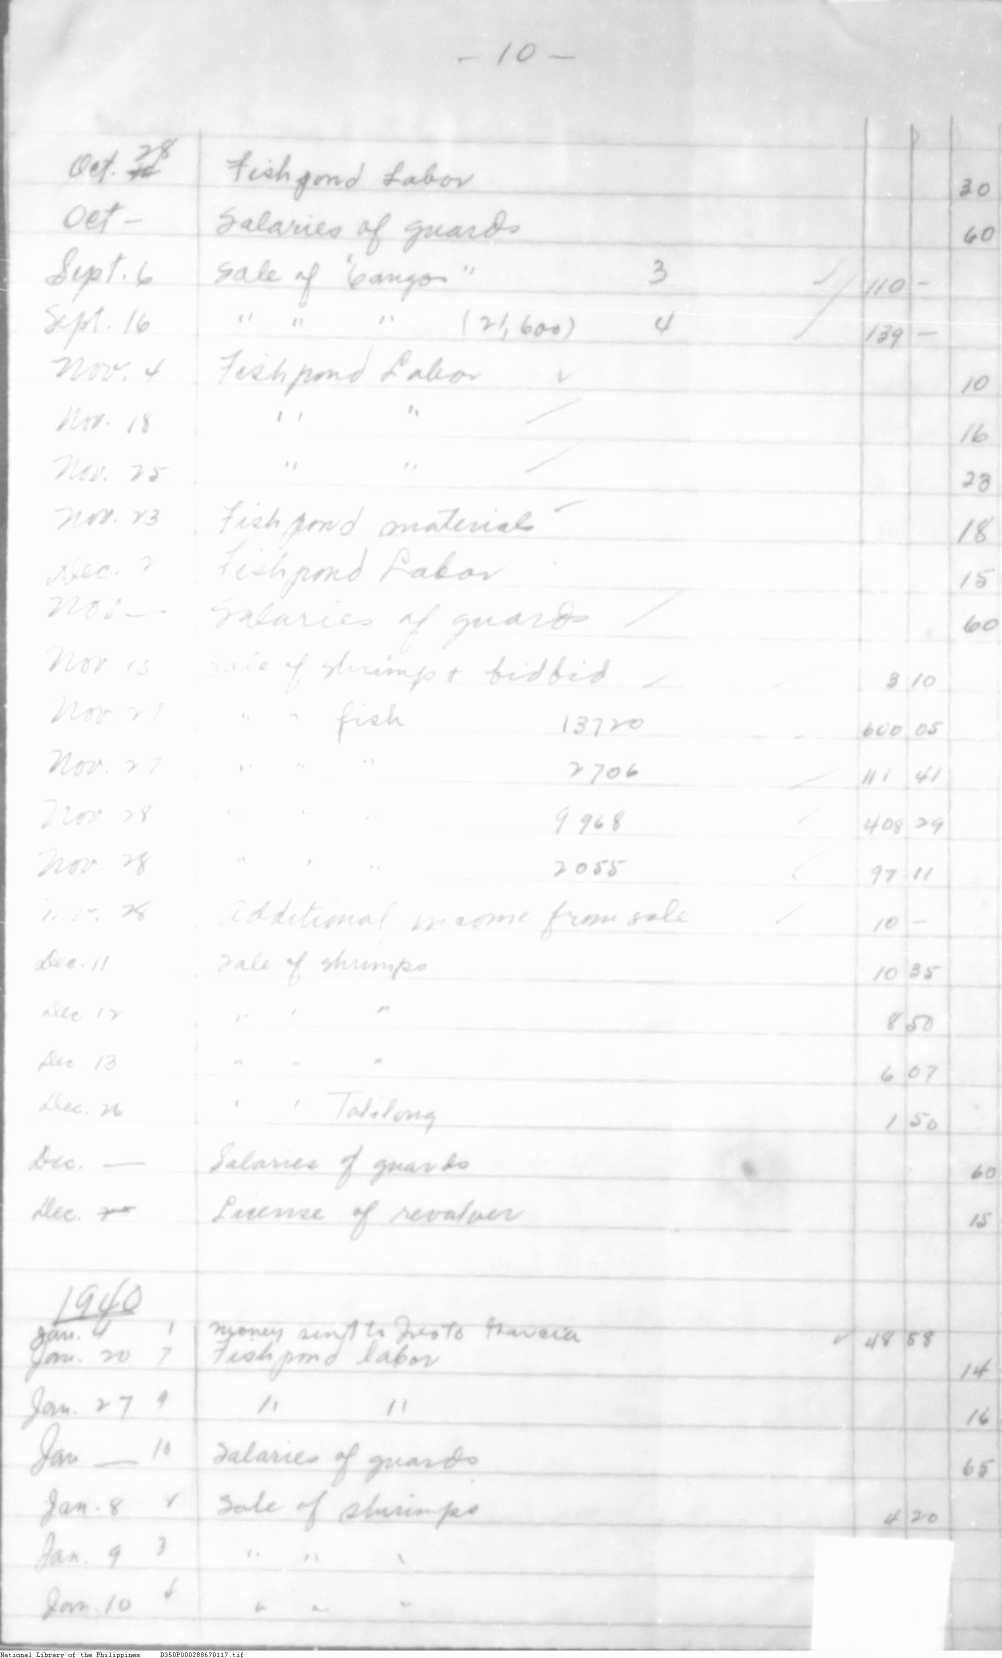 - 10 -
Oct. 28 Fishpond Labor 30
Oct - Salaries of guards 60
Sept. 6 Sale of "bangos" 3 110 -
Sept. 16 " " " (21,600) 4 139 -
Nov. 4 Fishpond Labor 10
Nov. 18 " " 16
Nov. 25 " " 23
Nov. 23 Fishpond materials 18
Dec. 2 Fishpond Labor 15
Nov - Salaries of guards 60
Nov 15 Sale of shrimps + bidbid 3 10
Nov " " fish 13720 600 05
Nov. 27 " " " 2706 111 41
Nov 28 " " " 9968 408 29
Nov 28 " " " 2055 97 11
Nov. 28 Additional income from sale 10 -
Dec. 11 Sale of shrimps 10 35
Dec 12 " " " 8 50
Dec 13 " " " 6 07
Dec. 26 " " Talilong 1 50
Dec. — Salaries of guards 60
Dec. License of revolver 15
1940
Jan. 4 1 Money sent to 48 58
Jan. 20 7 Fishpond labor 14
Jan. 27 9 " " 16
Jan — 10 Salaries of guards 65
Jan. 8 2 Sale of shrimps 4 20
Jan. 9 3 " " "
Jan. 10 4 " " "
National Library of the Philippines D350P000288670117.tif